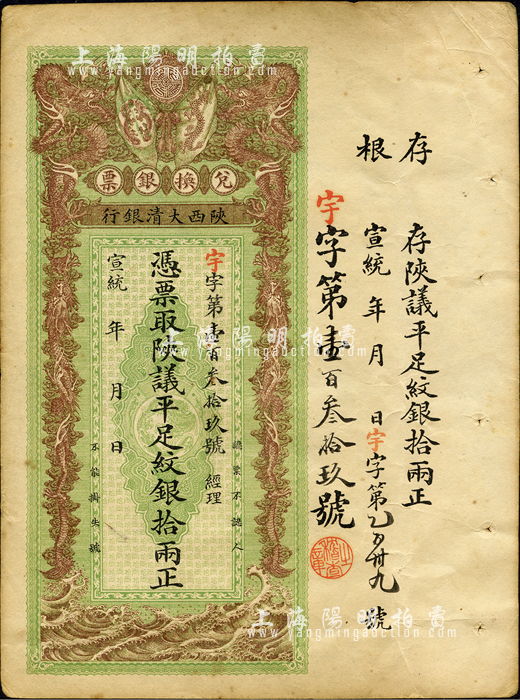 上海陽明拍賣
www.yangmingauction.com
兌換銀票
陝西大清銀行
宇字第壹百叁拾玖號 經理
憑票取陝議平足紋銀拾兩正
宣統 年 月 日
認票不認人
不能掛失號
上海陽明拍賣
www.yangmingauction.com
存根
存陝議平足紋銀拾兩正
宣統 年 月 日 宇字第 卅九 號
宇字第壹百叁拾玖號
上海陽明拍賣
www.yangmingauction.com